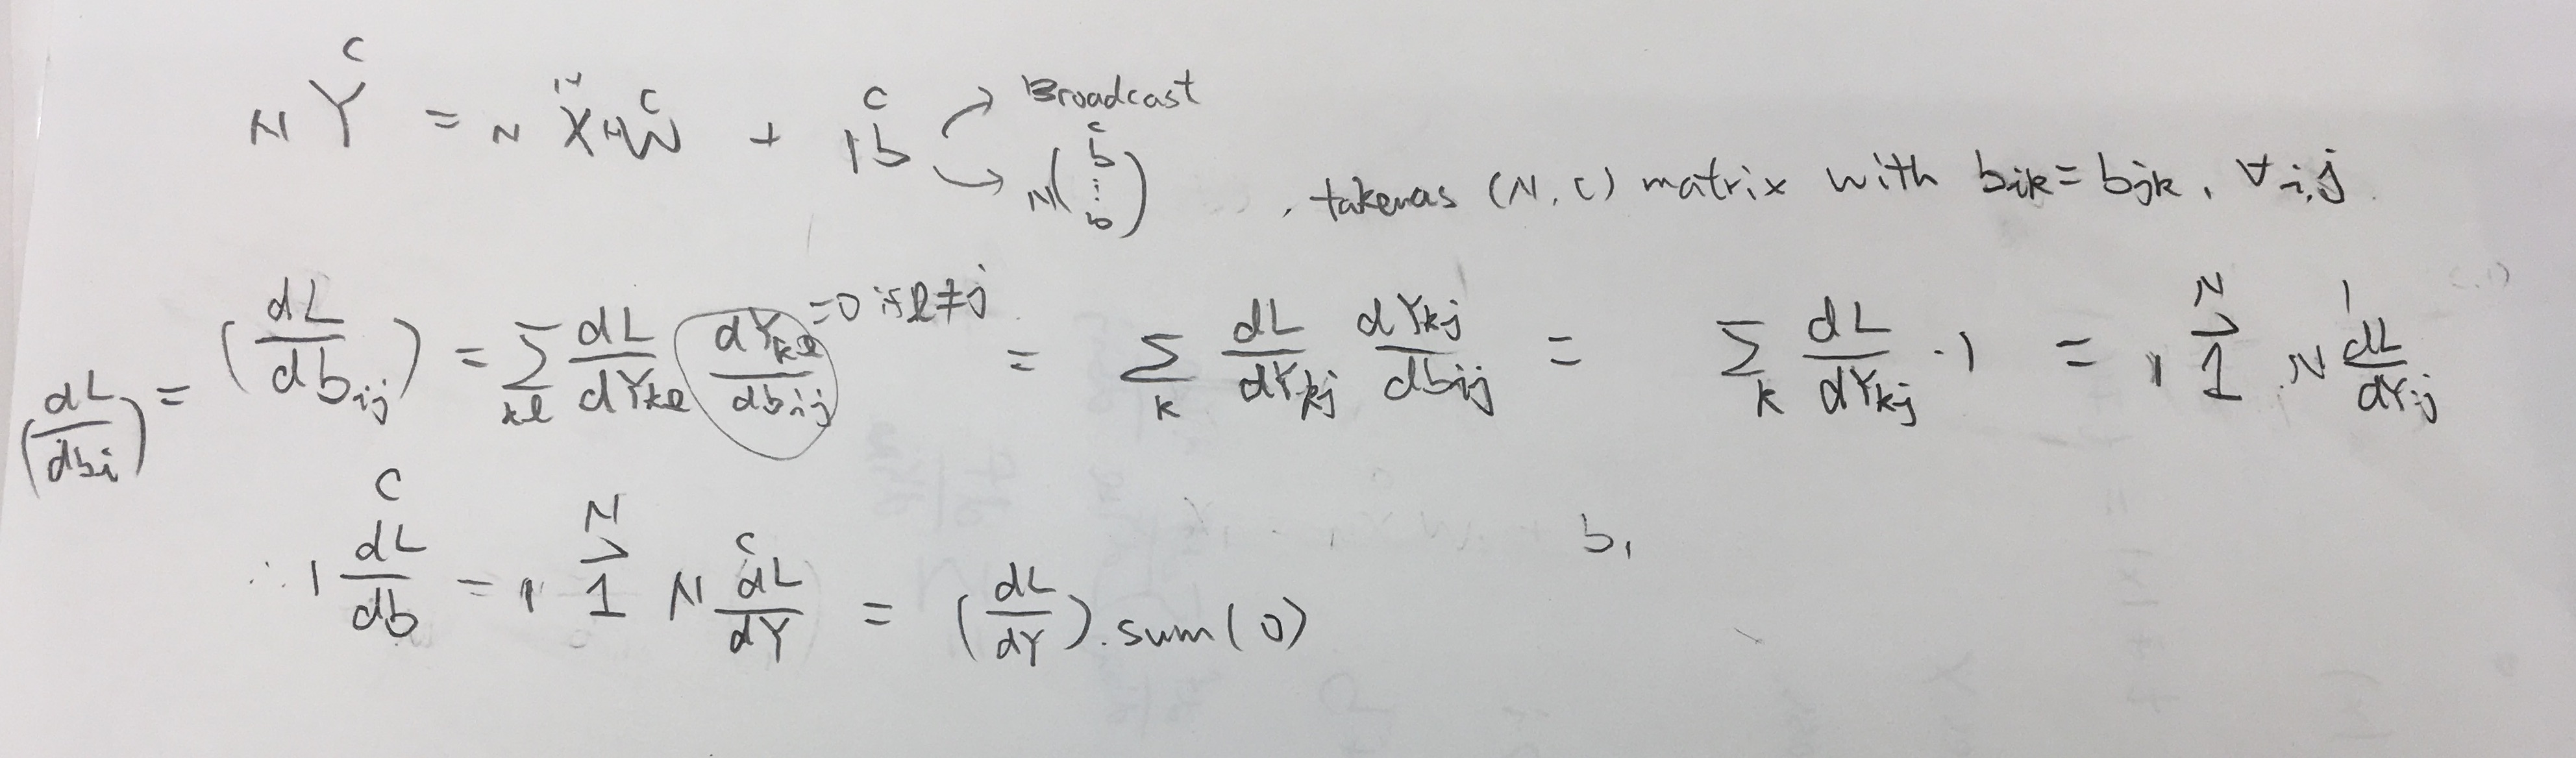 N Y^C = N X^H H W^C + 1 b^C → Broadcast → N (b ⋮ b)^C , taken as (N, C) matrix with b_ik = b_jk, ∀ i,j.
(dL/db_i) = (dL/db_ij) = Σ_kl dL/dY_kl dY_kl/db_ij =0 if l≠j = Σ_k dL/dY_kj dY_kj/db_ij = Σ_k dL/dY_kj · 1 = 1 1⃗^N N dL/dY_ij ^1
∴ 1 dL/db ^C = 1 1⃗^N N dL/dY ^C = (dL/dY).sum(0)
b,